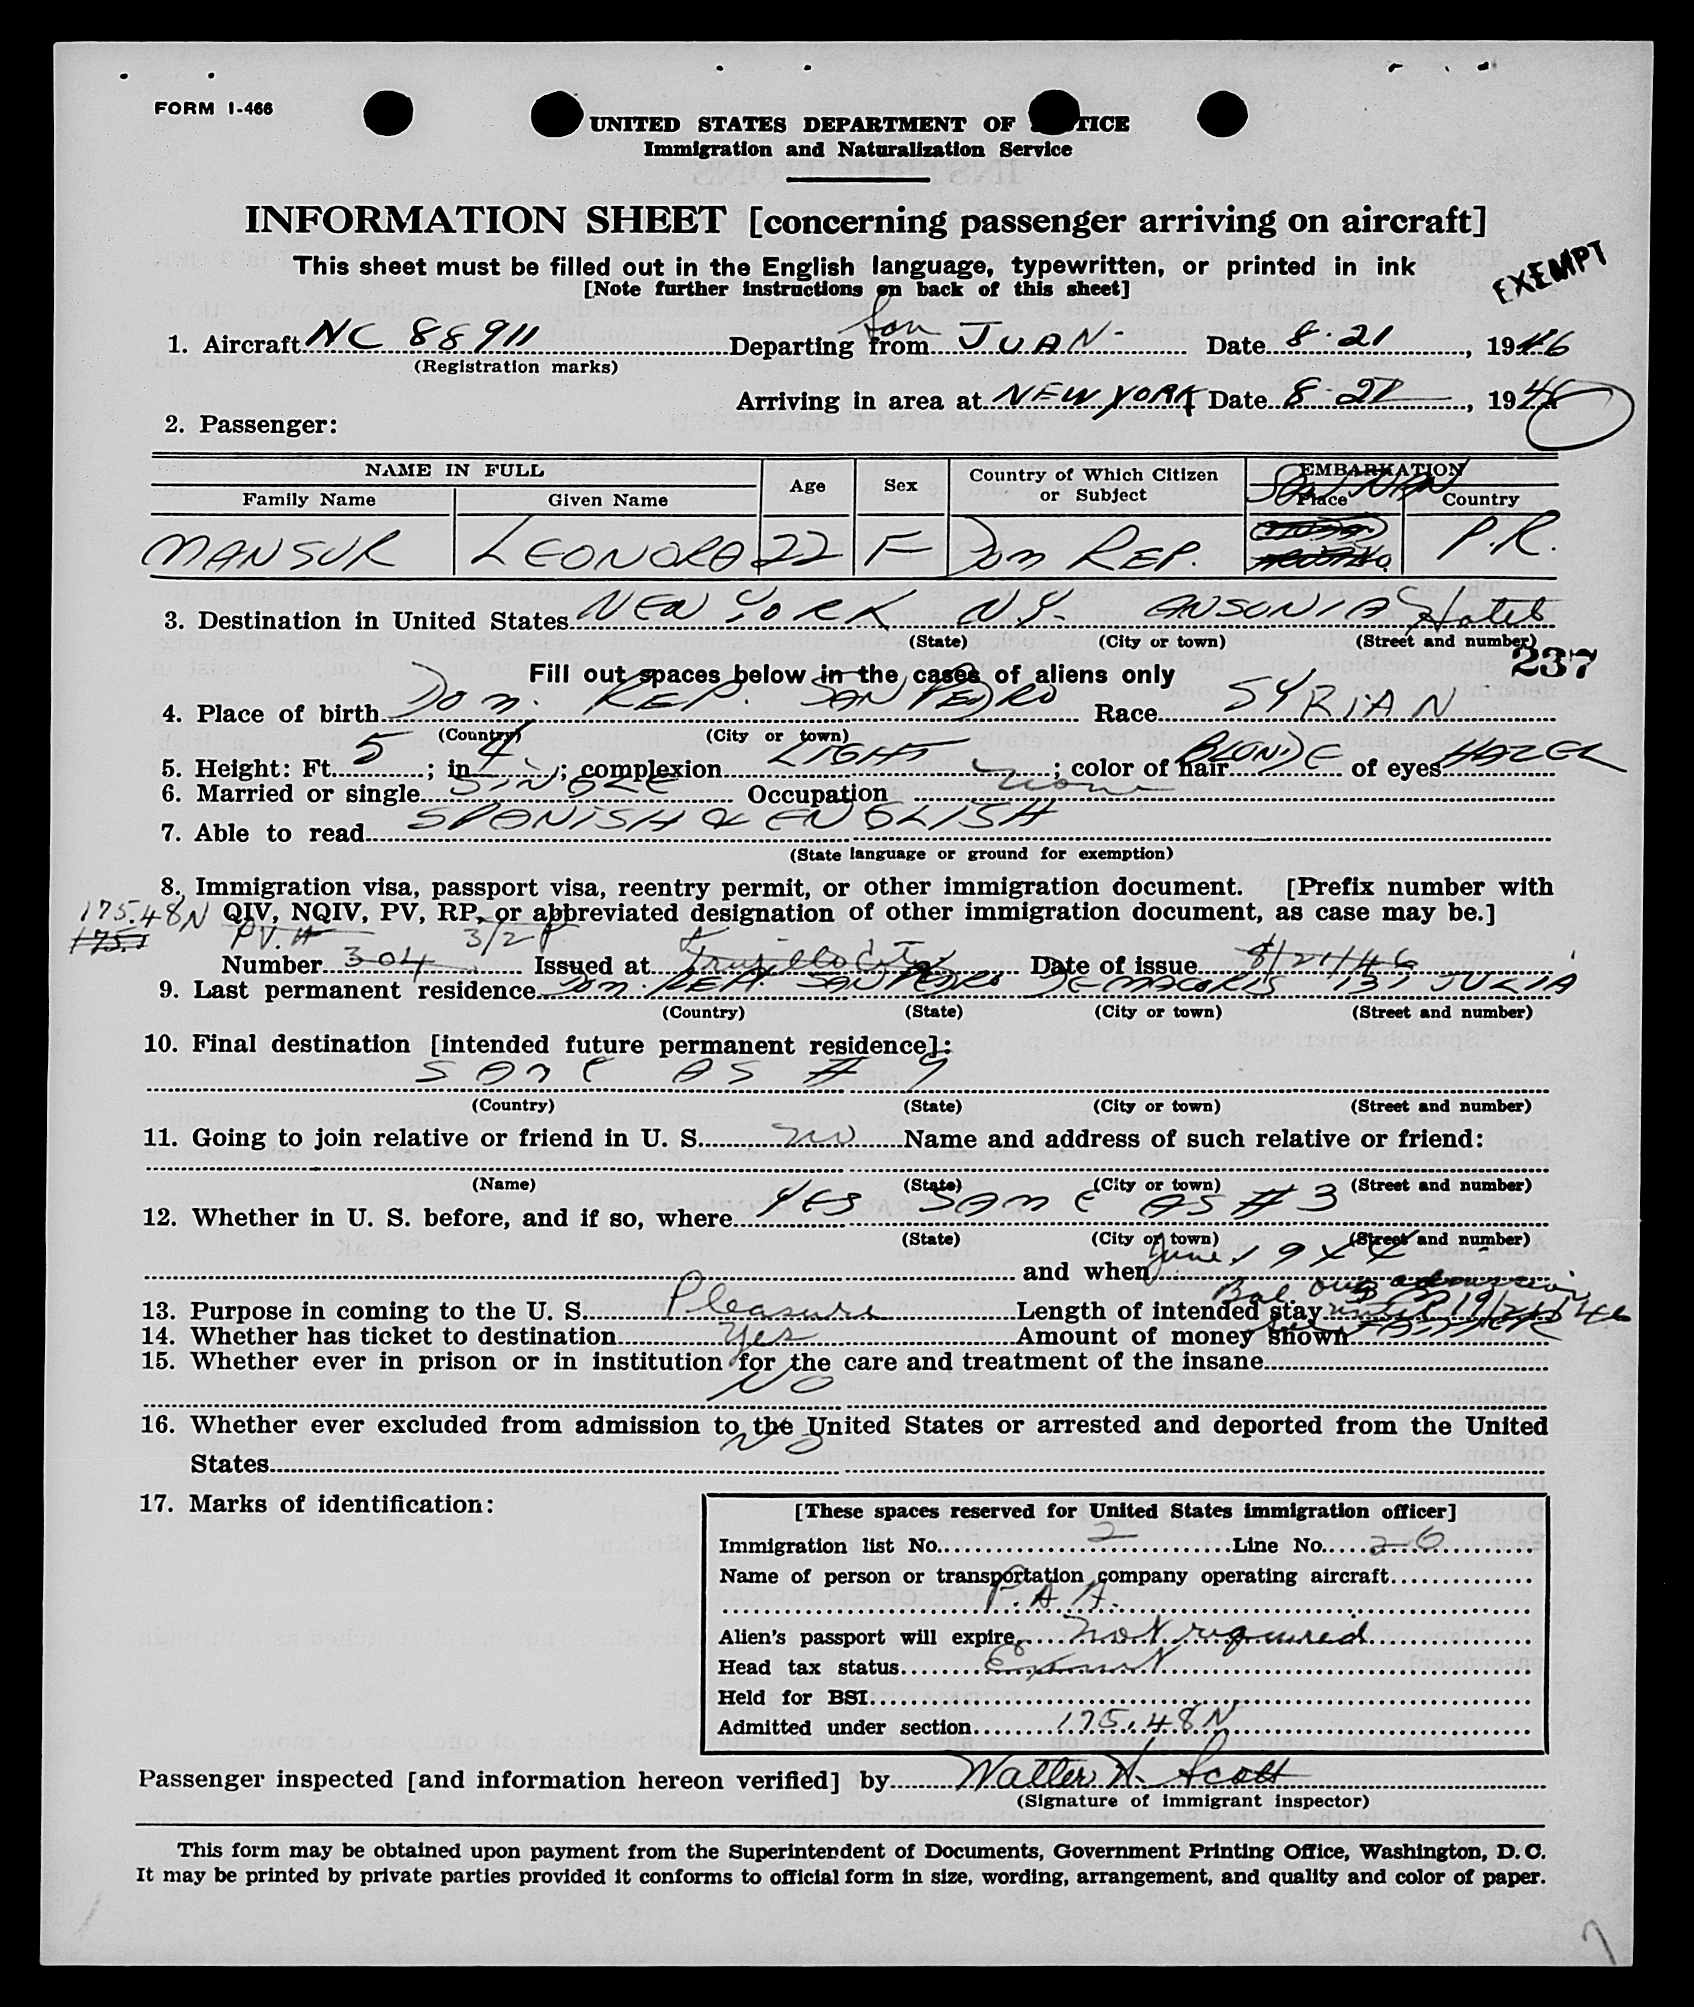 FORM I-466
UNITED STATES DEPARTMENT OF TICE
Immigration and Naturalization Service
INFORMATION SHEET [concerning passenger arriving on aircraft]
This sheet must be filled out in the English language, typewritten, or printed in ink
[Note further instructions on back of this sheet]
EXEMPT
1. Aircraft NC 88911 Departing from San JUAN - Date 8-21, 1946
(Registration marks)
Arriving in area at NEW YORK Date 8-21, 1946
2. Passenger:
NAME IN FULL Age Sex Country of Which Citizen or Subject EMBARKATION
Family Name Given Name Place Country
San JUAN
MANSUR LEONORA 22 F Dom REP. P.R.
3. Destination in United States NEW YORK N.Y. ANSONIA Hotel
(State) (City or town) (Street and number)
237
Fill out spaces below in the cases of aliens only
4. Place of birth Dom. REP. SAN PEDRO Race SYRIAN
(Country) (City or town)
5. Height: Ft. 5; in. 4; complexion LIGHT; color of hair BLONDE of eyes HAZEL
6. Married or single SINGLE Occupation none
7. Able to read SPANISH & ENGLISH
(State language or ground for exemption)
8. Immigration visa, passport visa, reentry permit, or other immigration document. [Prefix number with
175.48N QIV, NQIV, PV, RP, or abbreviated designation of other immigration document, as case may be.]
175.1 PV. # 3/2
Number 304 Issued at Trujillo City Date of issue 8/21/46
9. Last permanent residence Dom. REP. SAN PEDRO DE MACORIS 131 JULIA
(Country) (State) (City or town) (Street and number)
10. Final destination [intended future permanent residence]:
SAME AS # 9
(Country) (State) (City or town) (Street and number)
11. Going to join relative or friend in U. S. no Name and address of such relative or friend:
(Name) (State) (City or town) (Street and number)
12. Whether in U. S. before, and if so, where YES SAME AS # 3
(State) (City or town) (Street and number)
and when June 1944
13. Purpose in coming to the U. S. Pleasure Length of intended stay Bal orig admission until 9/21/46
14. Whether has ticket to destination Yes Amount of money shown
15. Whether ever in prison or in institution for the care and treatment of the insane
NO
16. Whether ever excluded from admission to the United States or arrested and deported from the United
States NO
17. Marks of identification:
[These spaces reserved for United States immigration officer]
Immigration list No. 2 Line No. 26
Name of person or transportation company operating aircraft
P.A.A.
Alien's passport will expire not required
Head tax status Exempt
Held for BSI
Admitted under section 175.48N
Passenger inspected [and information hereon verified] by Walter W. Scott
(Signature of immigrant inspector)
This form may be obtained upon payment from the Superintendent of Documents, Government Printing Office, Washington, D. C.
It may be printed by private parties provided it conforms to official form in size, wording, arrangement, and quality and color of paper.
7